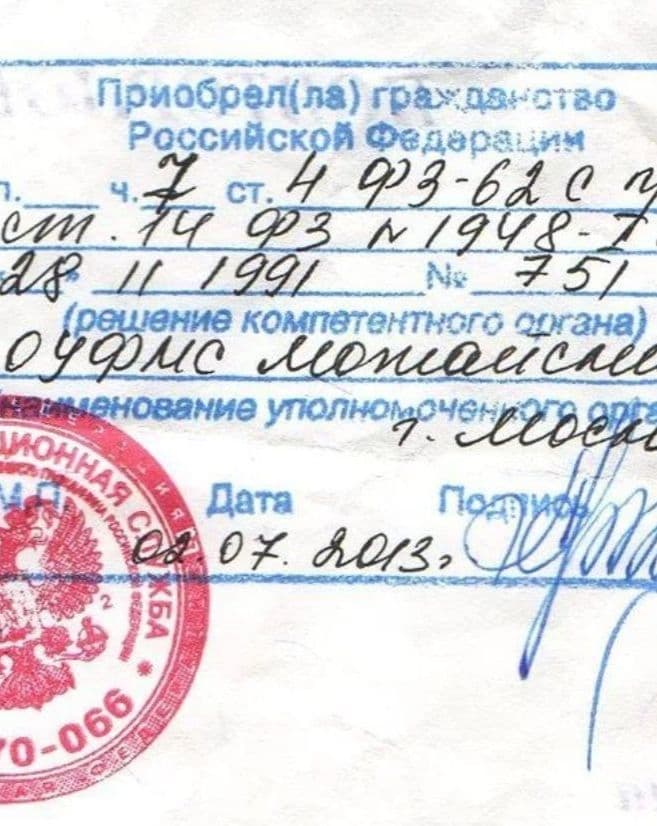 Приобрел(ла) гражданство
Российской Федерации
п. ч. 7 ст. 4 ФЗ-62 с у
ст. 14 ФЗ N 1948-I
28 " 11 1991 № 751
(решение компетентного органа)
ОУФМС Можайский
(наименование уполномоченного орга
г. Моск
М.П. Дата Подпись
02.07.2013г
ЦИОННАЯ СЛУЖБА
РОССИЙСКОЙ ФЕДЕРАЦИИ
2
70-066